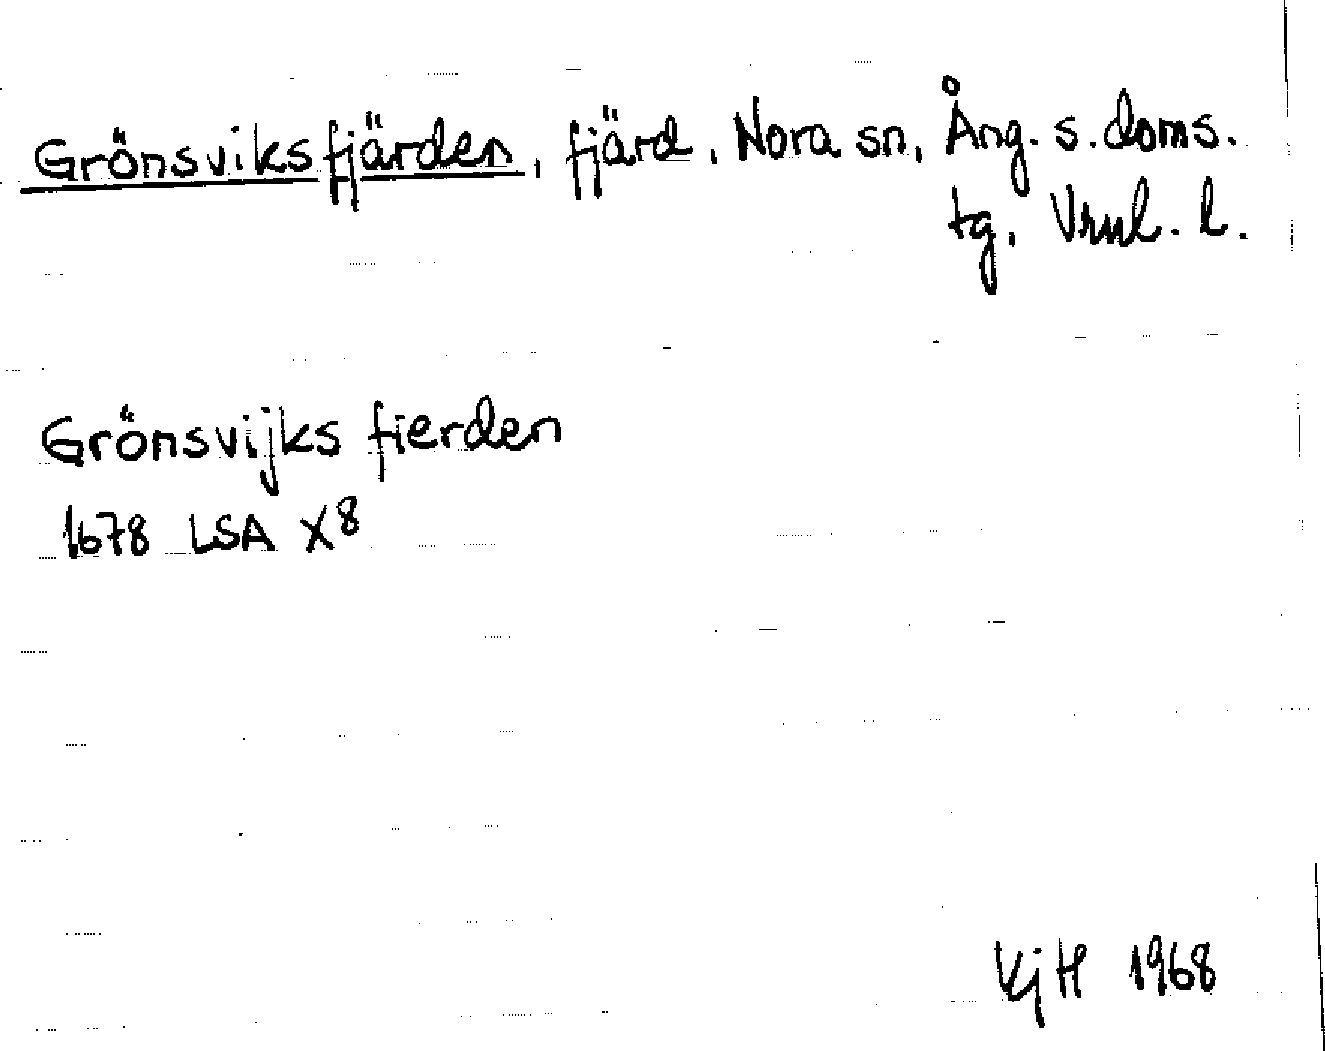 Grönsviksfjärden, fjärd, Nora sn, Ång. s. doms.
tg, Vrnl. l.
Grönsvijks fierden
1678 LSA X8
KjH 1968